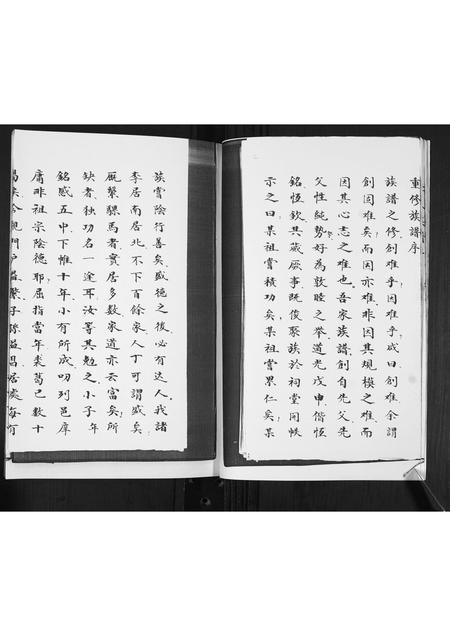 重修族譜序
族譜之修創難乎因難乎咸曰創難余謂
創固難矣而因亦難非因其規模之難而
因其心志之難也吾家族譜創自先父先
父性純勢好為敦睦之舉道光戊申偕恆
銘恆欽共蕆厥事既復聚族於祠堂同帙
示之曰某祖嘗積功矣某祖嘗累仁矣某
族嘗陰行善矣盛德之後必有達人我諸
李居南居北不下百餘家人丁可謂盛矣
廐繫騾馬者實居多數家道亦云富矣所
缺者獨功名一途耳汝等其勉之小子年
銘感五中下帷十年小有所成叨列邑庠
庸非祖宗陰德耶屈指當年裘葛已數十
易矣今觀門戶益繁子孫益昌居處每有